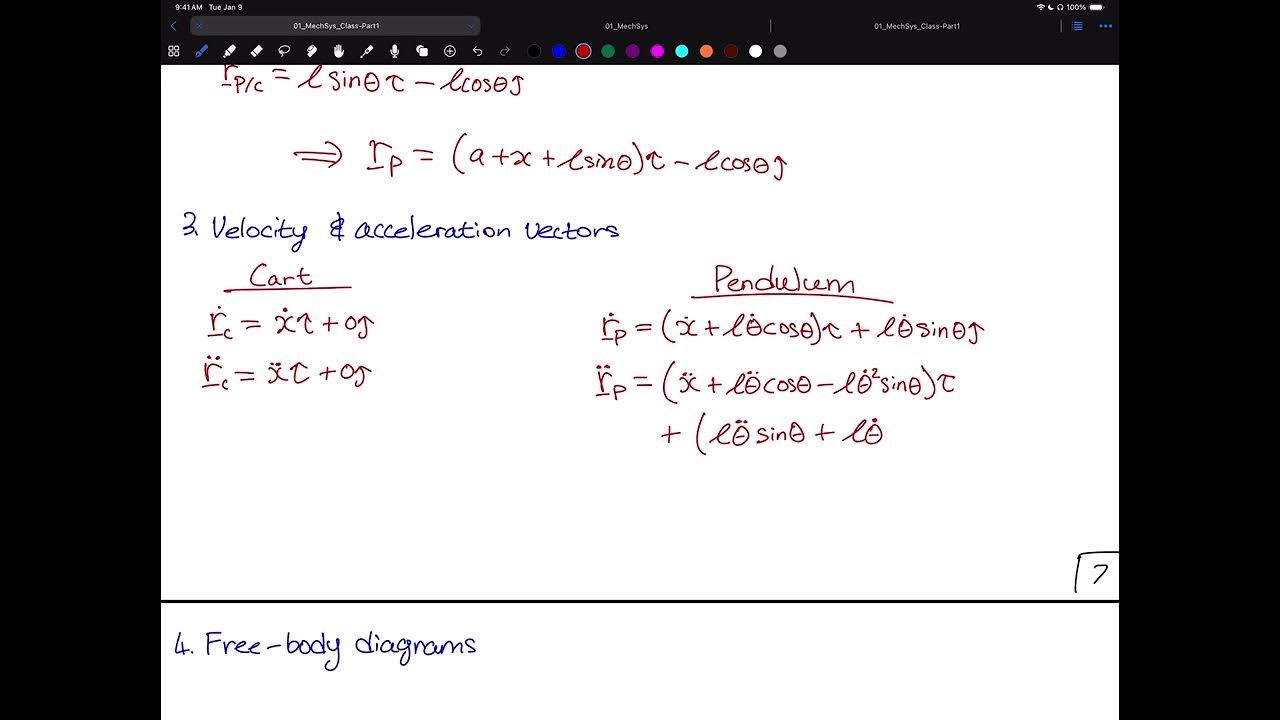 9:41 AM Tue Jan 9
100%
01_MechSys_Class-Part1
01_MechSys
01_MechSys_Class-Part1
r_P/c = l sinθ ı − l cosθ ȷ
⇒ r_P = (a + x + l sinθ) ı − l cosθ ȷ
3. Velocity & acceleration vectors
Cart
ṙ_c = ẋ ı + 0 ȷ
r̈_c = ẍ ı + 0 ȷ
Pendulum
ṙ_P = (ẋ + l θ̇ cosθ) ı + l θ̇ sinθ ȷ
r̈_P = (ẍ + l θ̈ cosθ − l θ̇² sinθ) ı
+ (l θ̈ sinθ + l θ̇
7
4. Free-body diagrams